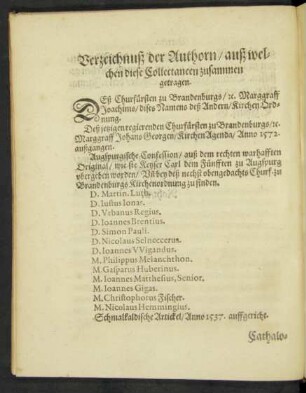 Verzeichnuß der Authorn/ auß wel-
chen diese Collectaneen zusammen
getragen.
Deß Churfürsten zu Brandenburgs/ ꝛc. Marggraff
Joachims/ dises Namens deß Andern/ Kirchen Ord-
dnung.
Deß jetzigen regierenden Churfürsten zu Brandenburgs/ ꝛc.
Marggraff Johans Georgen/ Kirchen Agenda/ Anno 1572.
außgangen.
Augspurgische Confession/ auß dem rechten warhafften
Original/ wie sie Keyser Carl dem Fünfften zu Augspurg
vbergeben worden/ Vñ bey deß nechst obengedachts Churf. zu
Brandenburgs Kirchenordnung zu finden.
D. Martin. Luth.
D. Iustus Ionas.
D. Vrbanus Regius.
D. Ioannes Brentius.
D. Simon Pauli.
D. Nicolaus Selneccerus.
D. Ioannes VVigandus.
M. Philippus Melanchthon.
M. Gasparus Huberinus.
M. Ioannes Matthesius, Senior.
M. Ioannes Gigas.
M. Christophorus Fischer.
M. Nicolaus Hemmingius.
Schmalkaldische Artickel/ Anno 1537. auffgericht.
Cathalo-